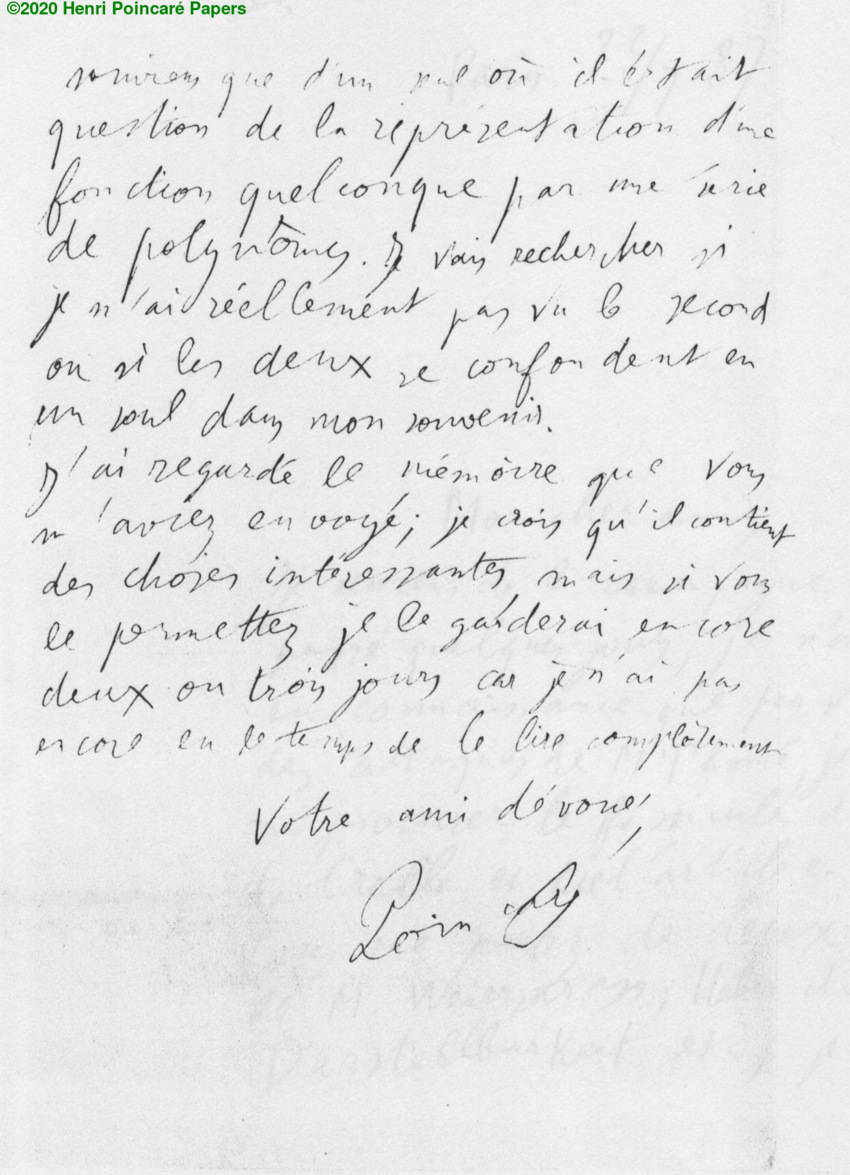 ©2020 Henri Poincaré Papers
souviens que d'un seul où il était
question de la représentation d'une
fonction quelconque par une série
de polynômes. Je vais rechercher si
je n'ai réellement pas vu le second
ou si les deux se confondent en
un seul dans mon souvenir.
J'ai regardé le mémoire que vous
m'aviez envoyé; je crois qu'il contient
des choses intéressantes, mais si vous
le permettez je le garderai encore
deux ou trois jours car je n'ai pas
encore eu le temps de le lire complètement
Votre ami dévoué,
Poincaré